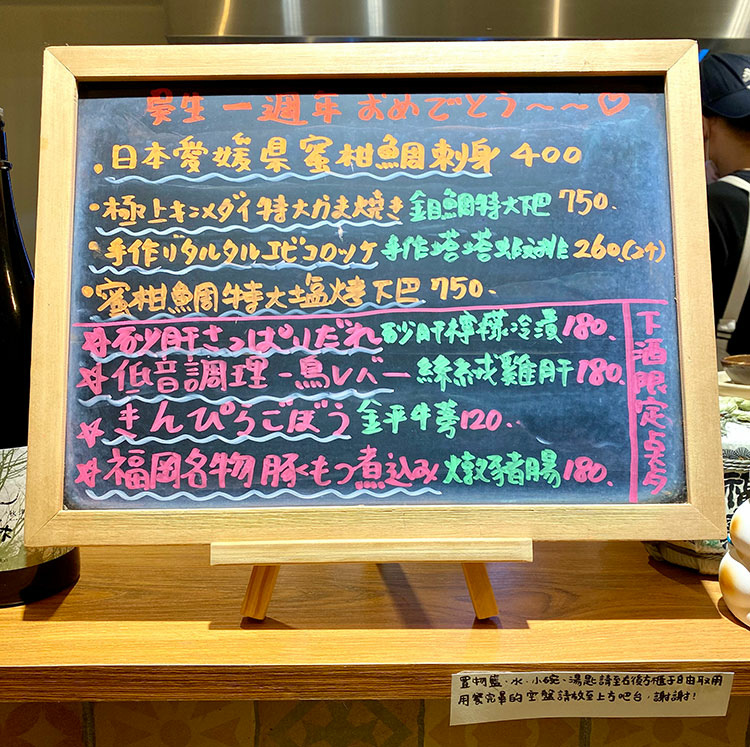 吳生 一週年 おめでとう～～♡
・日本愛媛県蜜柑鯛刺身 400
・極上キンメダイ特大かま焼き 金目鯛特大下巴 750.
・手作りタルタルエビコロッケ 手作塔塔炸蝦排 260.(2个)
・蜜柑鯛特大塩烤下巴 750.
☆砂肝さっぱりだれ 砂肝檸檬冷漬 180.
☆低音調理-鳥レバー 綿絨雞肝 180.
☆きんぴらごぼう 金平牛蒡 120.
☆福岡名物豚もつ煮込み 燉豬腸 180.
下酒限定
置物籃、水、小碗、湯匙請至右後方櫃子自由取用
用餐完畢的空盤請放至上方吧台,謝謝!